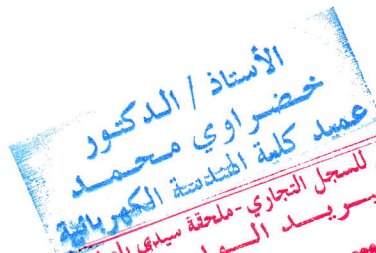 الأستاذ / الدكتور
خضراوي محمد
عميد كلية الهندسة الكهربائية
للسجل التجاري - ملحقة سيدي
بريد